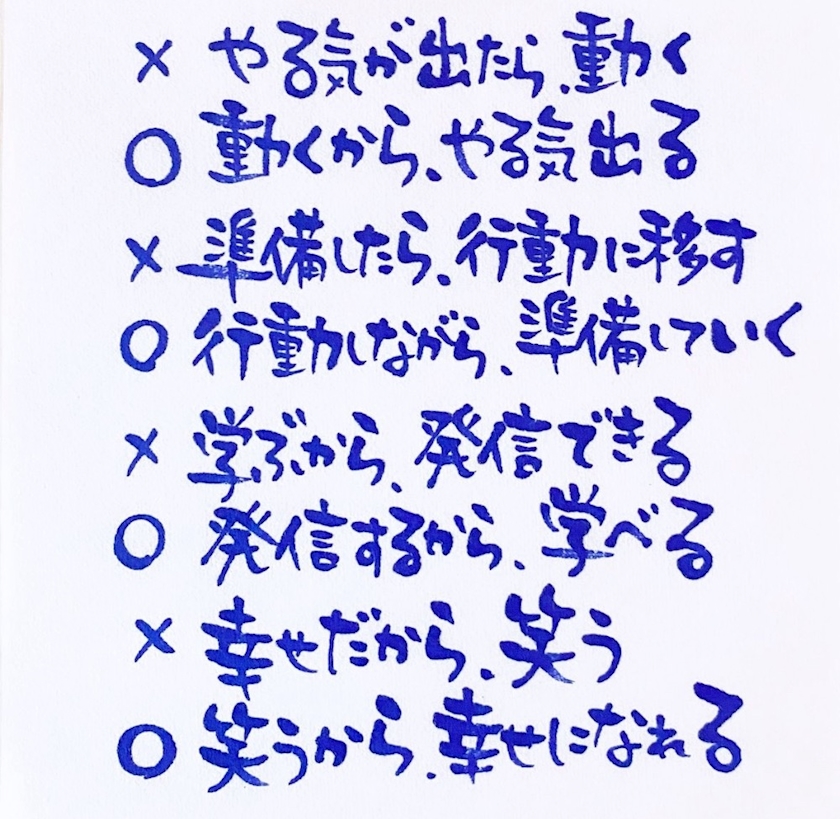 × やる気が出たら、動く
○ 動くから、やる気出る
× 準備したら、行動に移す
○ 行動しながら、準備していく
× 学ぶから、発信できる
○ 発信するから、学べる
× 幸せだから、笑う
○ 笑うから、幸せになれる